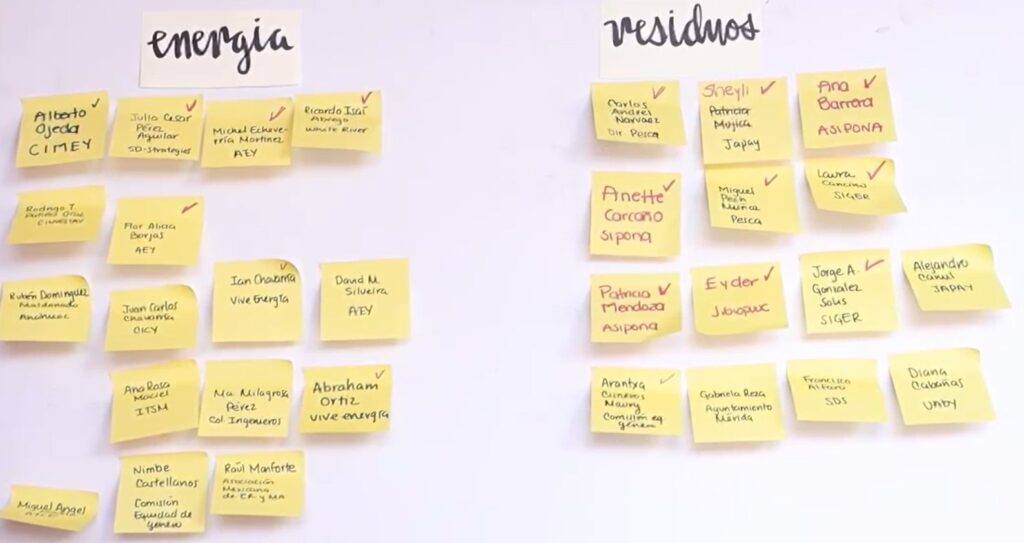 energía
Alberto
Ojeda
CIMEY
Julio Cesar
Pérez
Aguilar
SD-Strategies
Michel Echeve-
rría Martínez
AEY
Ricardo Isaí
Abrego
White River
Rodrigo T.
CINVESTAV
Flor Alicia
Borjas
AEY
Rubén Domínguez
Maldonado
Anáhuac
Juan Carlos
Chavarría
CICY
Ian Chavarría
Vive Energía
David M.
Silveira
AEY
Ana Rosa
Maciel
ITSM
Ma. Milagrosa
Pérez
Col. Ingenieros
Abraham
Ortiz
vive energía
Miguel Angel
Nimbe
Castellanos
Comisión
Equidad de
género
Raúl Monforte
Asociación
Mexicana
de ER y MA
residuos
Carlos
Andrei
Narvaez
Dir. Pesca
Sheyli
Patricia
Mujica
Japay
Ana
Barrera
ASIPONA
Anette
Carcaño
Sipona
Miguel
Peón
Muñoz
Pesca
Laura
Cancino
SIGER
Patricia
Mendoza
Asipona
Eyder
Jorge A.
Gonzalez
Solis
SIGER
Alejandro
Canul
JAPAY
Arantxa
Cisneros
Maury
Comisión eq.
género
Gabriela Reza
Ayuntamiento
Mérida
Francisco
Alfaro
SDS
Diana
Cabañas
UADY